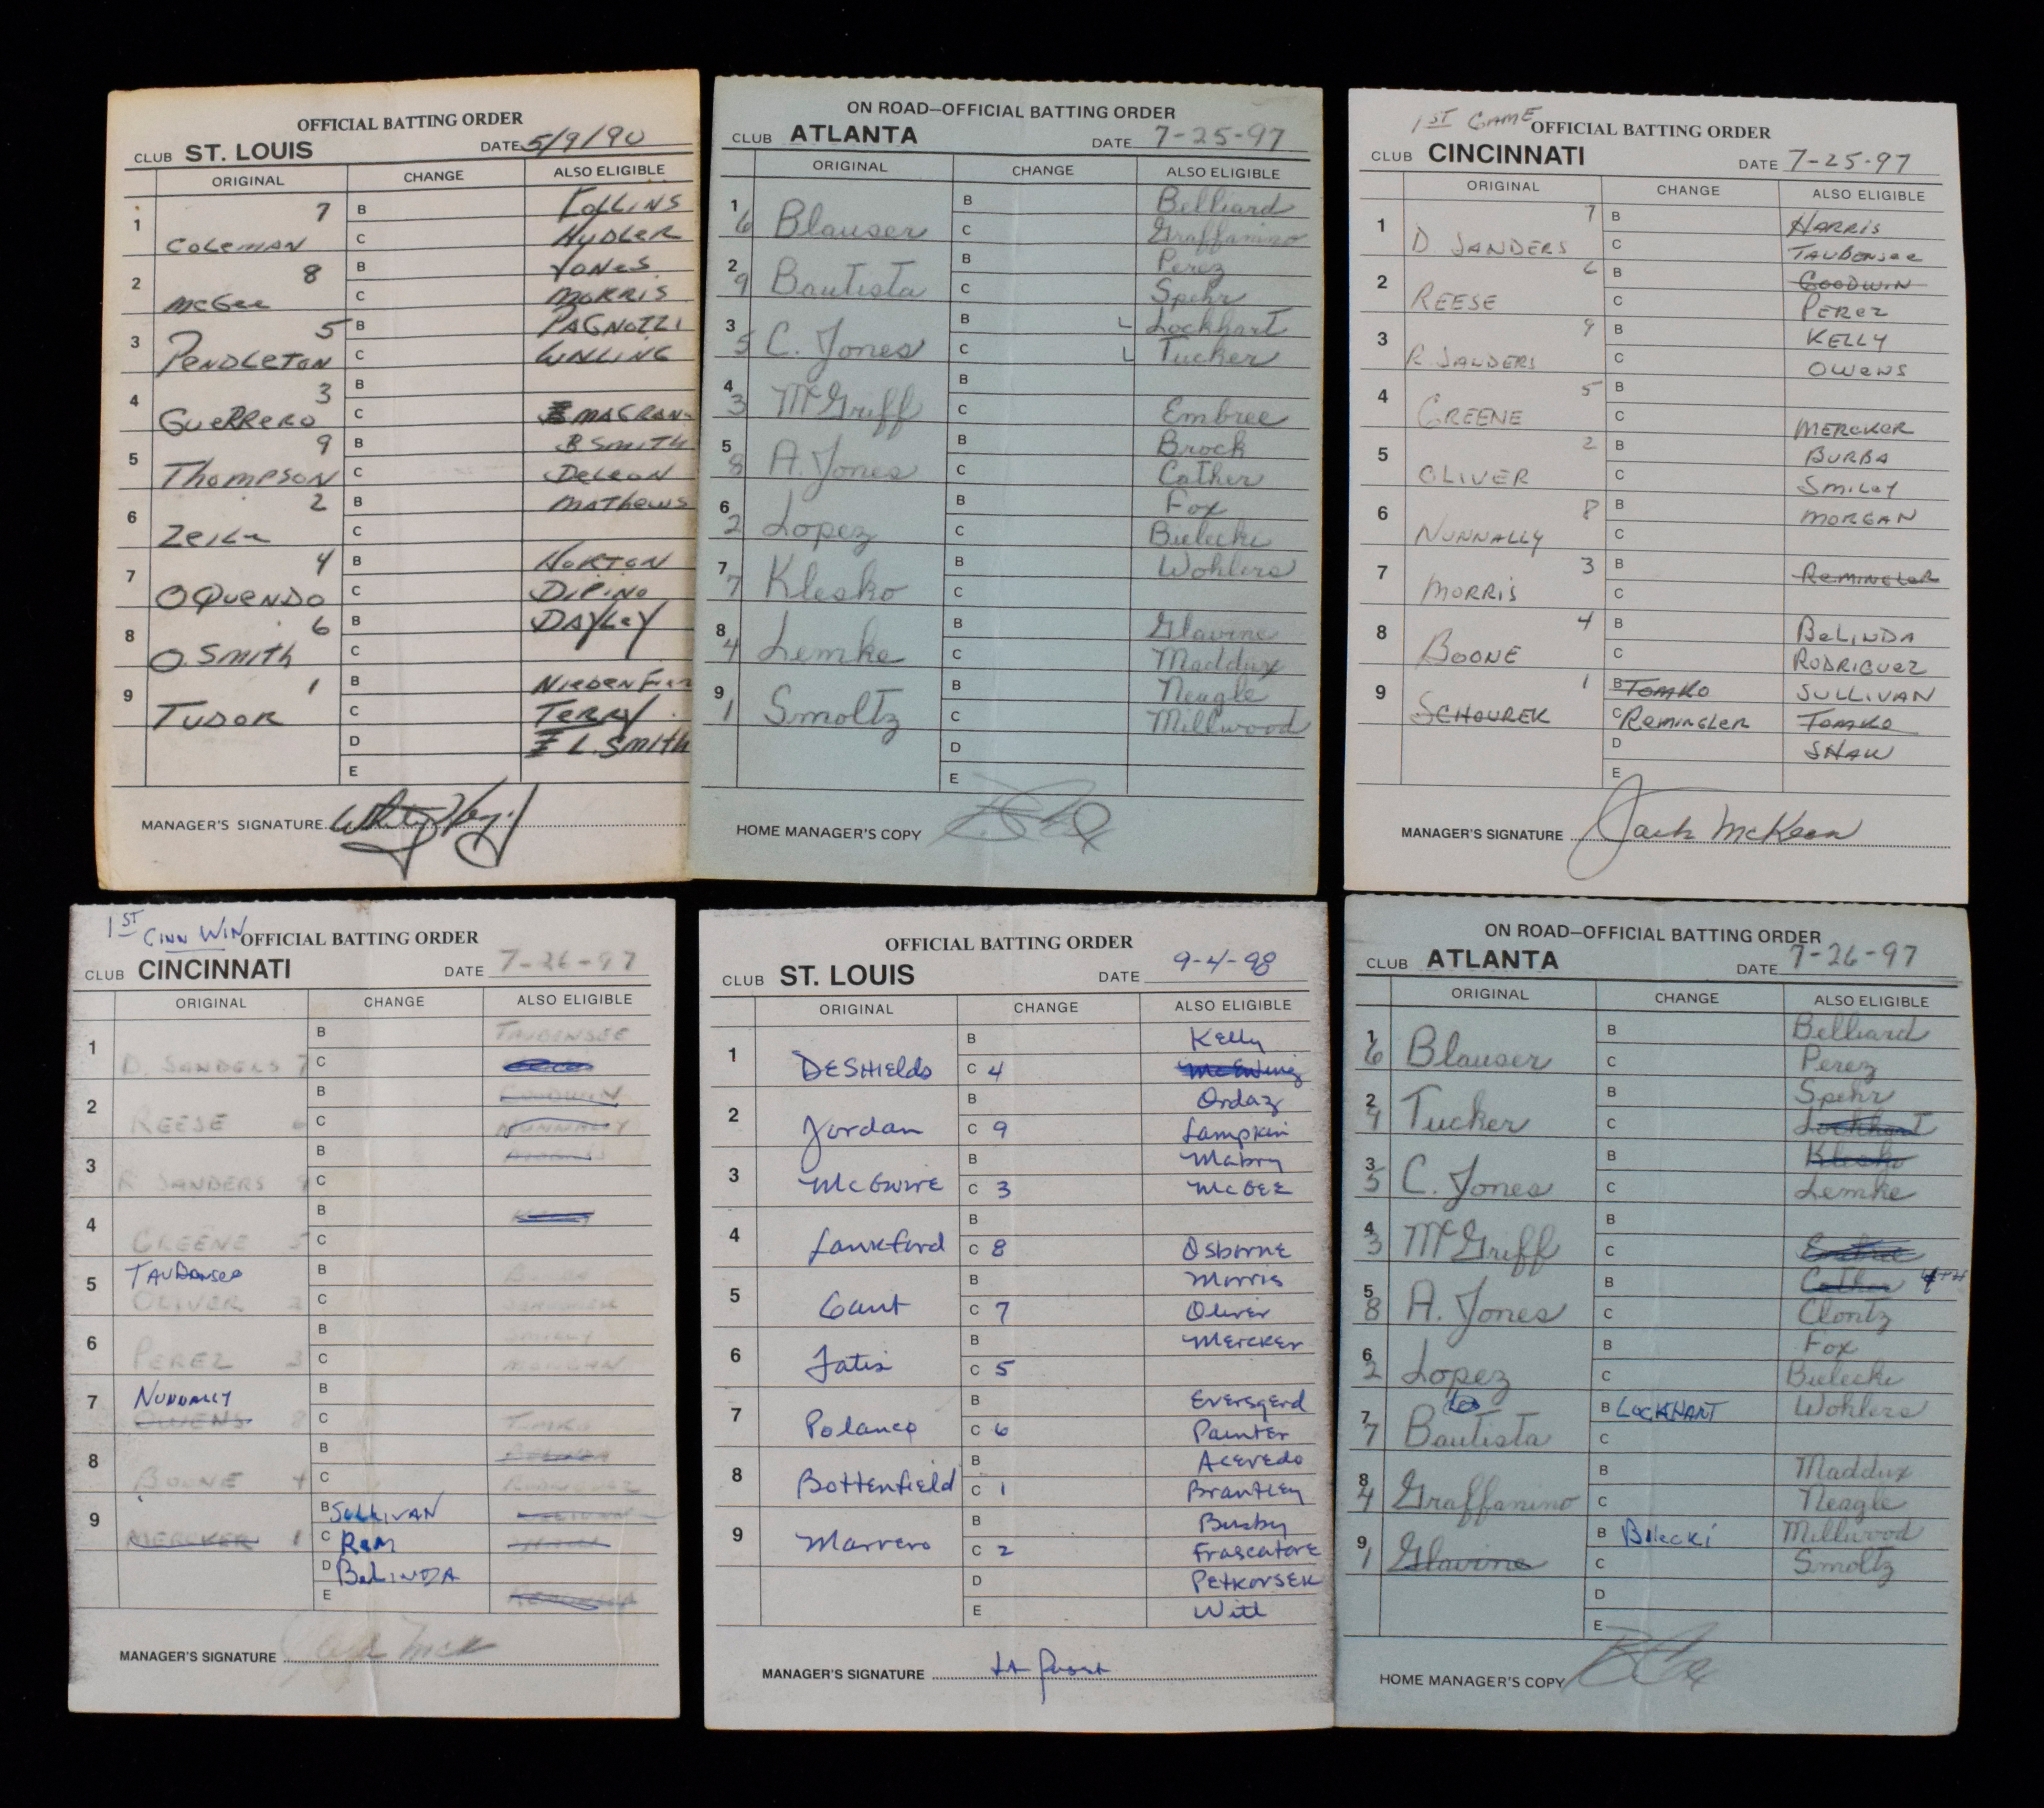 OFFICIAL BATTING ORDER
CLUB ST. LOUIS DATE 5/9/90
ORIGINAL CHANGE ALSO ELIGIBLE
7 B COLLINS
1 COLEMAN C HUDLER
8 B JONES
2 McGee C MORRIS
5 B PAGNOZZI
3 PENDLETON C WALLING
3 B
4 GUERRERO C MAGRANE
9 B B SMITH
5 THOMPSON C DeLeon
2 B MATHEWS
6 Zeile C
4 B HORTON
7 OQUENDO C DiPiNO
6 B DAYLEY
8 O. SMITH C
1 B NIEDENFUER
9 TUDOR C TERRY
D L. SMITH
E
MANAGER'S SIGNATURE Whitey Herzog
ON ROAD—OFFICIAL BATTING ORDER
CLUB ATLANTA DATE 7-25-97
ORIGINAL CHANGE ALSO ELIGIBLE
1 B Belliard
6 Blauser C Graffanino
2 B Perez
9 Bautista C Spehr
3 B L Lockhart
5 C. Jones C L Tucker
4 B
3 McGriff C Embree
5 B Brock
8 A. Jones C Cather
6 B Fox
2 Lopez C Bielecki
7 B Wohlers
7 Klesko C
8 B Glavine
4 Lemke C Maddux
9 B Neagle
1 Smoltz C Millwood
D
E
HOME MANAGER'S COPY
1ST GAME OFFICIAL BATTING ORDER
CLUB CINCINNATI DATE 7-25-97
ORIGINAL CHANGE ALSO ELIGIBLE
7 B HARRIS
1 D SANDERS C TAUBENSEE
6 B GOODWIN
2 REESE C PEREZ
9 B KELLY
3 R. SANDERS C OWENS
5 B
4 GREENE C MERCKER
2 B BURBA
5 OLIVER C SMILEY
8 B MORGAN
6 NUNNALLY C
3 B REMINGLER
7 MORRIS C
4 B BELINDA
8 BOONE C RODRIGUEZ
1 B TOMKO SULLIVAN
9 SCHOUREK C REMINGLER TOMKO
D SHAW
E
MANAGER'S SIGNATURE Jack McKeon
1ST CINN WIN OFFICIAL BATTING ORDER
CLUB CINCINNATI DATE 7-26-97
ORIGINAL CHANGE ALSO ELIGIBLE
B TAUBENSEE
1 D. SANDERS 7 C
B GOODWIN
2 REESE 6 C NUNNALLY
B
3 R SANDERS 9 C
B
4 GREENE 5 C
5 TAUBENSEE B BURBA
OLIVER 2 C
B SMILEY
6 PEREZ 3 C MORGAN
7 NUNNALLY B
OWENS 8 C TOMKO
B BELINDA
8 BOONE 4 C RODRIGUEZ
B SULLIVAN SULLIVAN
9 MERCKER 1 C REM
D BELINDA
E
MANAGER'S SIGNATURE Jack McK
OFFICIAL BATTING ORDER
CLUB ST. LOUIS DATE 9-4-98
ORIGINAL CHANGE ALSO ELIGIBLE
B Kelly
1 DESHIELDS C 4 McEwing
B Ordaz
2 Jordan C 9 Lampkin
B Mabry
3 McGWIRE C 3 McGEE
B
4 Lankford C 8 Osborne
B Morris
5 Gant C 7 Oliver
B Mercker
6 Tatis C 5
B Eversgerd
7 Polanco C 6 Painter
B Acevedo
8 Bottenfield C 1 Brantley
B Busby
9 Marrero C 2 Frascatore
D Petkovsek
E Witt
MANAGER'S SIGNATURE
ON ROAD—OFFICIAL BATTING ORDER
CLUB ATLANTA DATE 7-26-97
ORIGINAL CHANGE ALSO ELIGIBLE
1 B Belliard
6 Blauser C Perez
2 B Spehr
9 Tucker C Lockhart
3 B Klesko
5 C. Jones C Lemke
4 B
3 McGriff C Embree
5 B Cather 4TH
8 A. Jones C Clontz
6 B Fox
2 Lopez C Bielecki
7 B LOCKHART Wohlers
7 Bautista C
8 B Maddux
4 Graffanino C Neagle
9 B Bilecki Millwood
1 Glavine C Smoltz
D
E
HOME MANAGER'S COPY